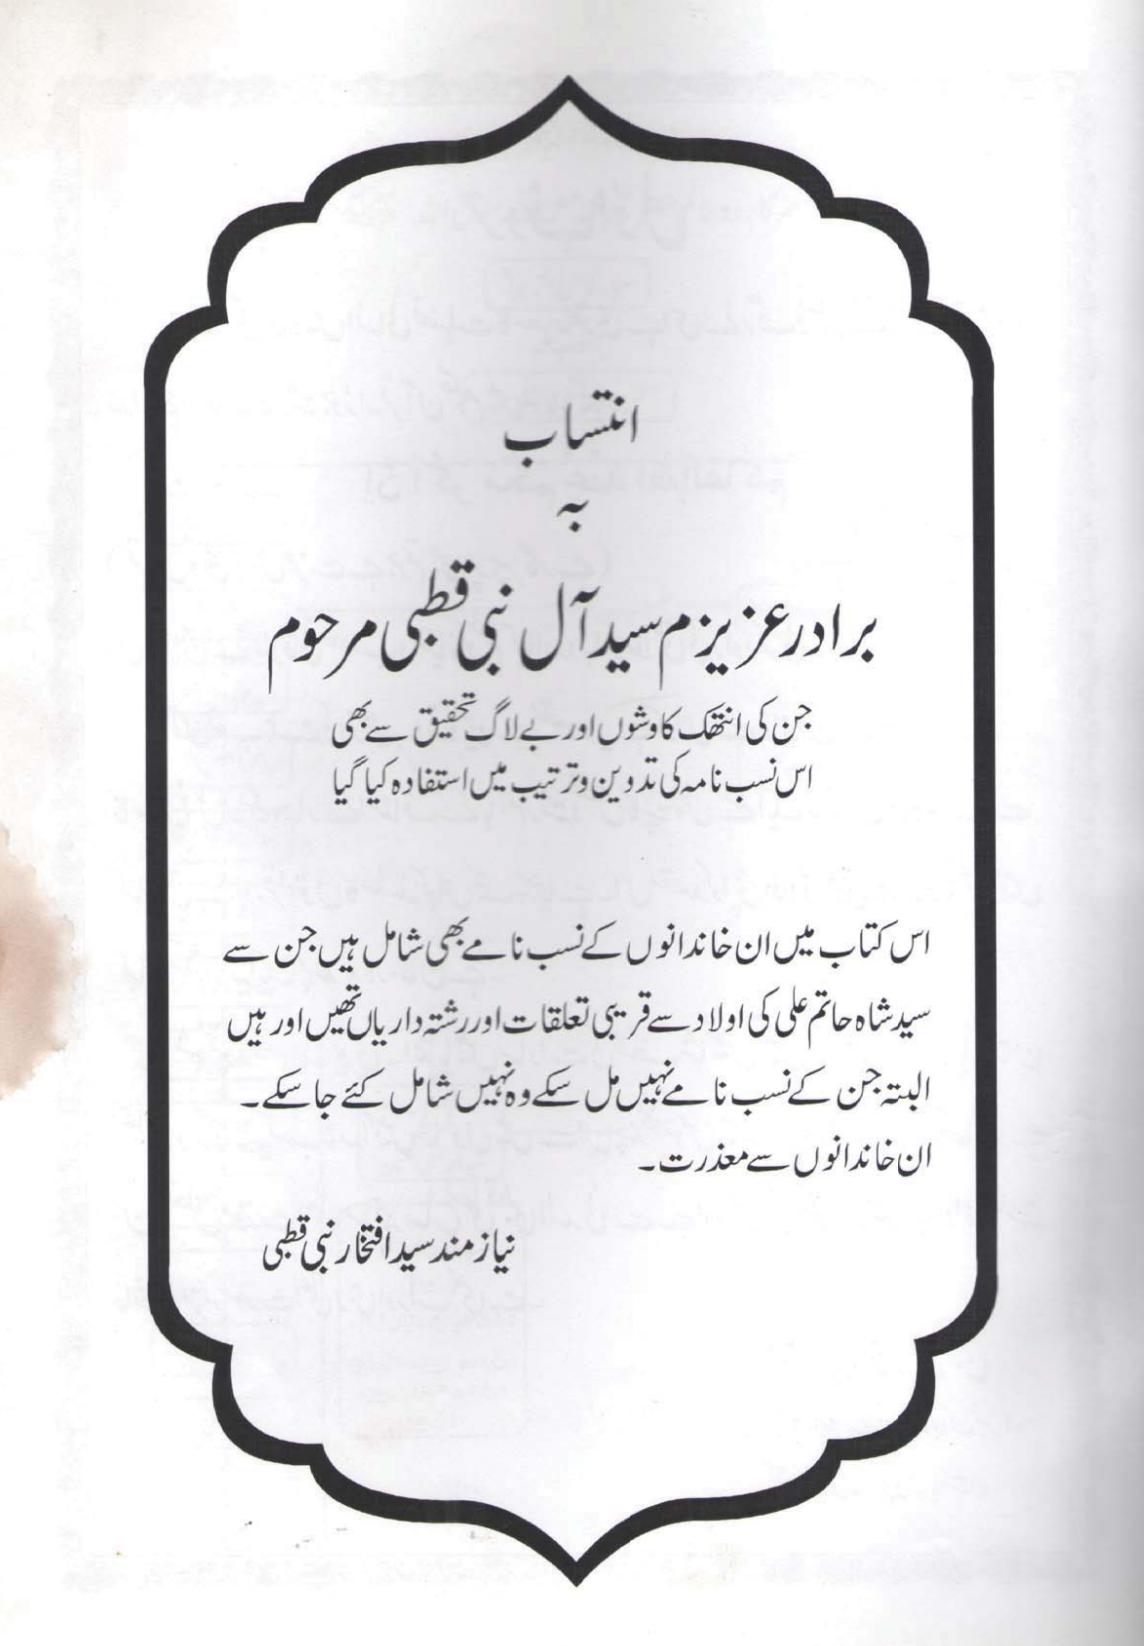 انتساب
بہ
برادر عزیزم سید آل نبی قطبی مرحوم
جن کی انتھک کاوشوں اور بے لاگ تحقیق سے بھی
اس نسب نامہ کی تدوین و ترتیب میں استفادہ کیا گیا
اس کتاب میں ان خاندانوں کے نسب نامے بھی شامل ہیں جن سے
سید شاہ حاتم علی کی اولاد سے قریبی تعلقات اور رشتہ داریاں تھیں اور ہیں
البتہ جن کے نسب نامے نہیں مل سکے وہ نہیں شامل کئے جا سکے۔
ان خاندانوں سے معذرت۔
نیاز مند سید افتخار نبی قطبی